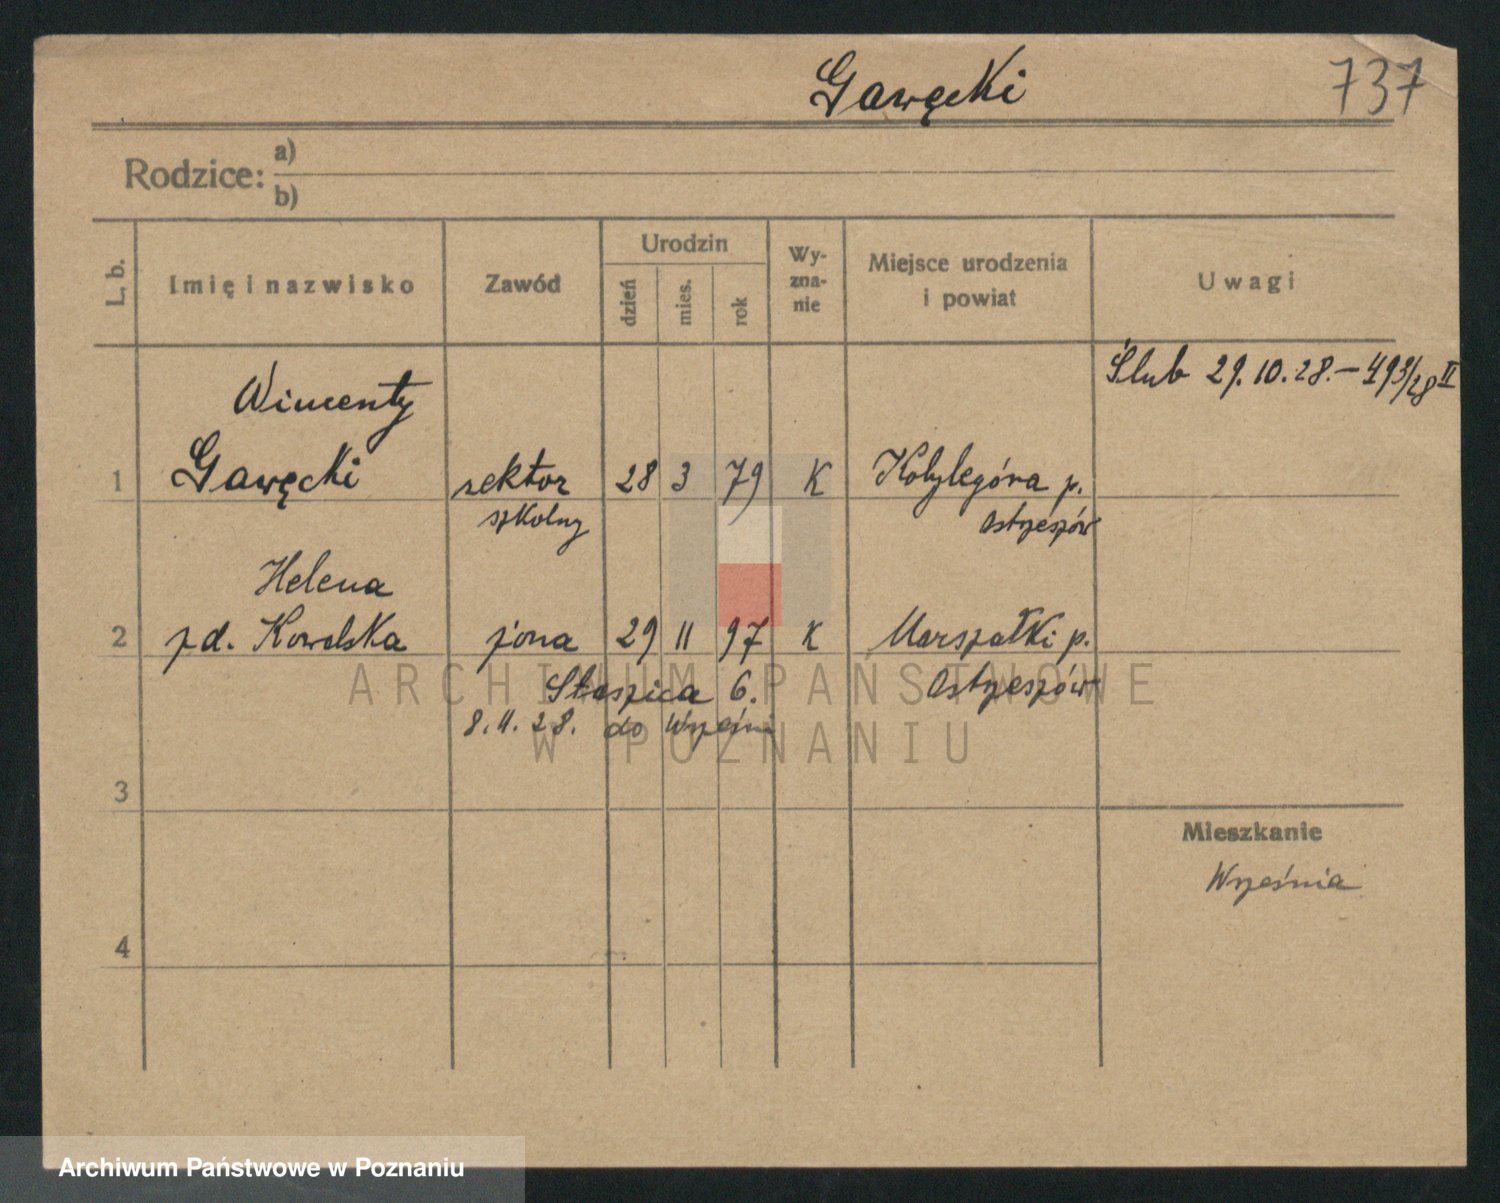 Gawęcki 737
Rodzice: a)
b)
L. b. Imię i nazwisko Zawód Urodzin dzień mies. rok Wy-zna-nie Miejsce urodzenia i powiat Uwagi
Ślub 29.10.28.— 493/28 II
Wincenty
1 Gawęcki rektor 28 3 79 K Kobylegóra p.
szkolny Ostrzeszów
Helena
2 zd. Kowalska żona 29 11 97 K Marszałki p.
Staszica 6. Ostrzeszów
8.11.28. do Wrześni
ARCHIWUM PAŃSTWOWE
W POZNANIU
3
Mieszkanie
Września
4
Archiwum Państwowe w Poznaniu